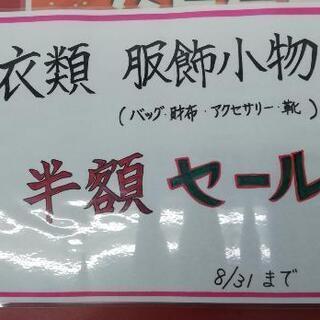 衣類 服飾小物
(バッグ・財布・アクセサリー・靴)
半額セール
8/31まで